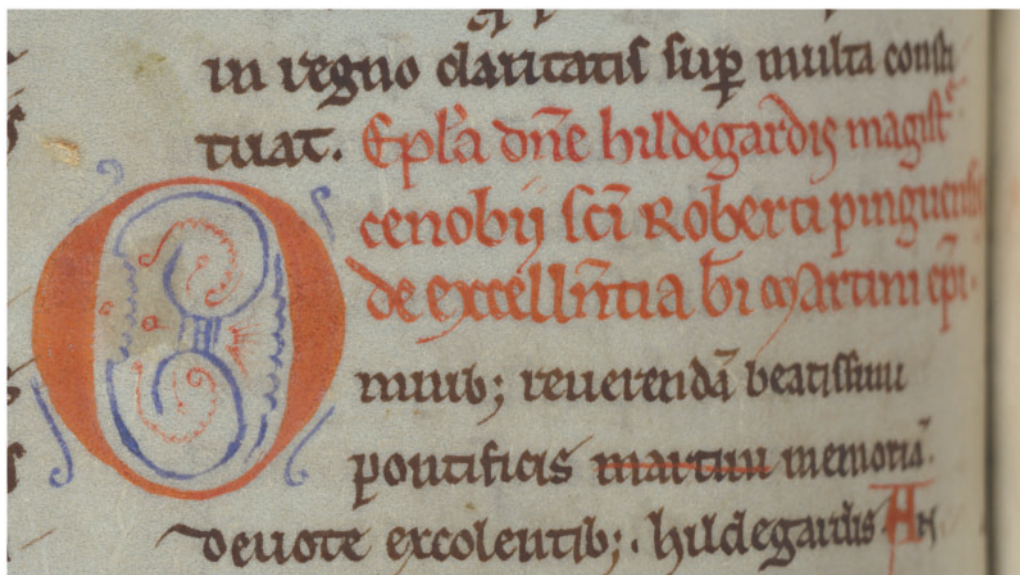 in regno claritatis sup̲ multa consti
tuat. Ep̅l̅a dn̅e hildegardis magist̅ᵉ
cenobij sc̅i Roberti pinguensis
de excelle̅ntia b̅i Martini ep̅i.
O mnib; reuerendā beatissimi
pontificis martini memoriā.
deuote excolentib; . hildegardis An